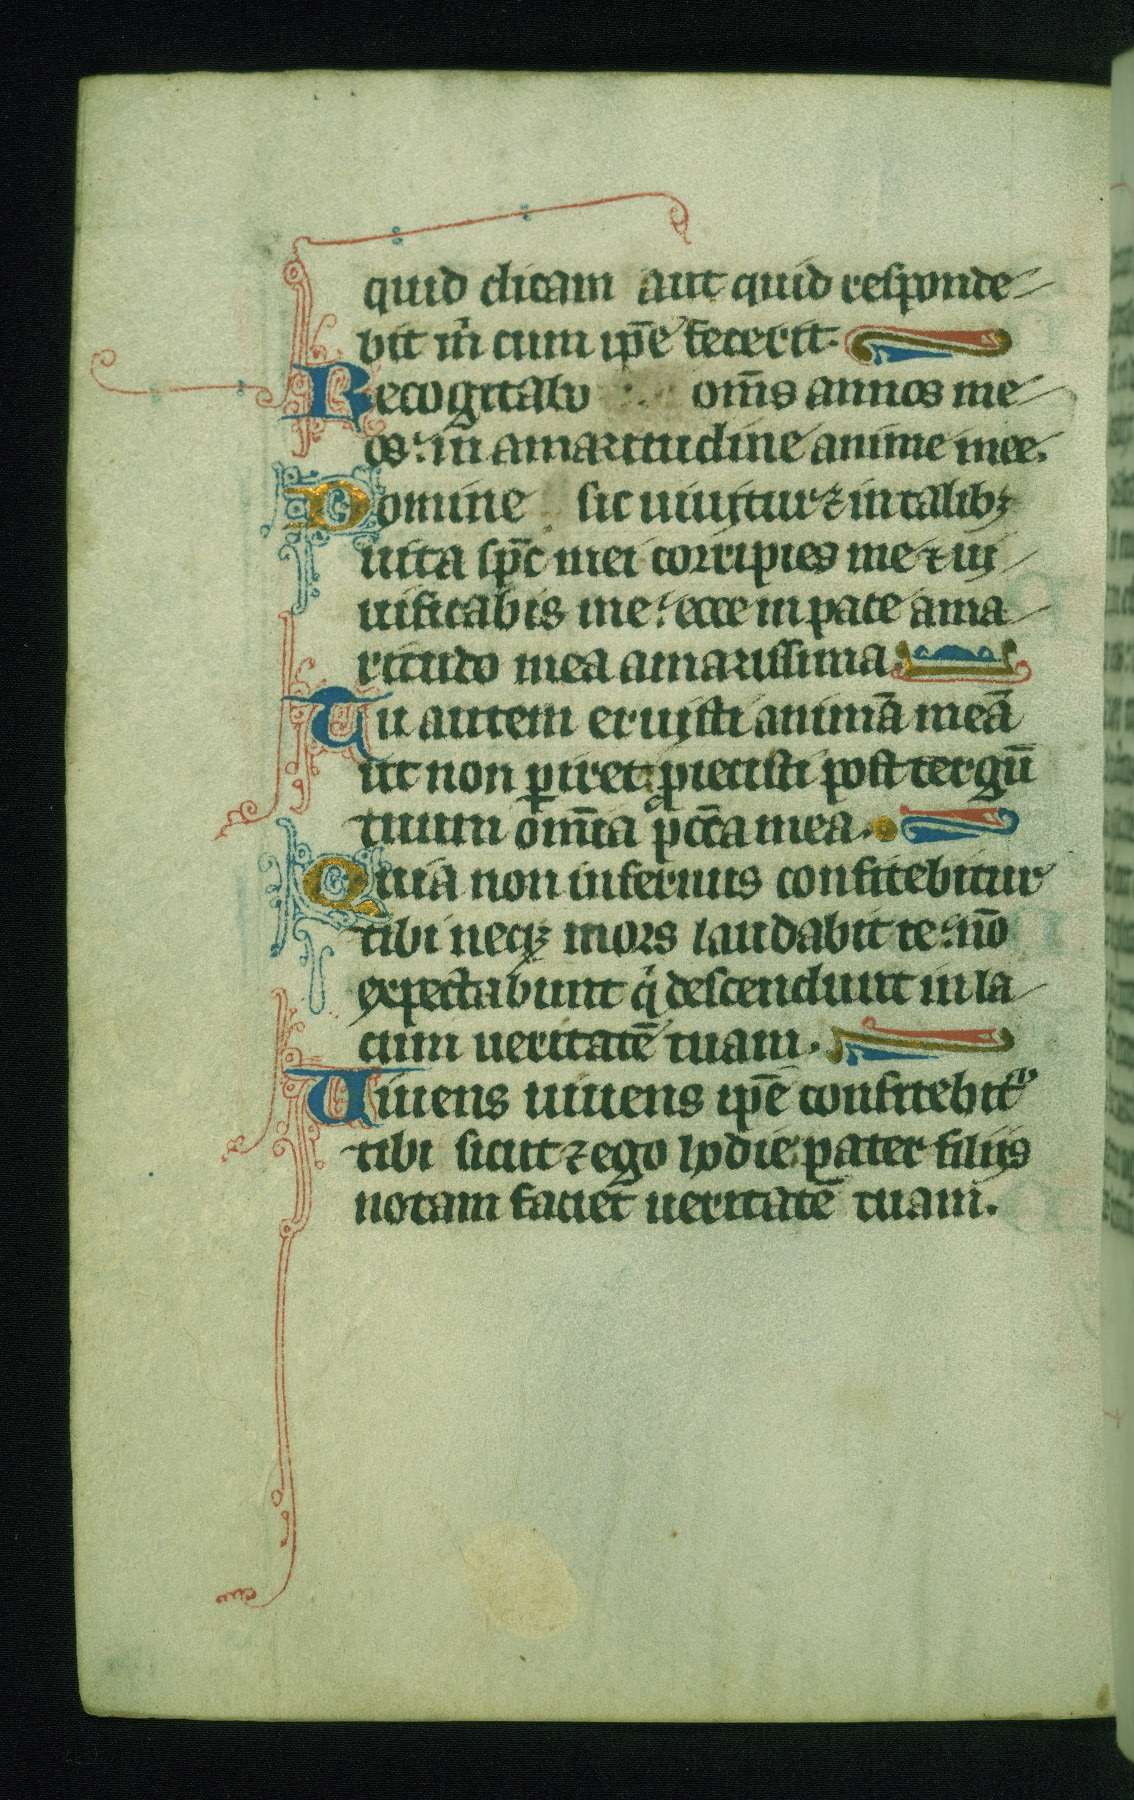 quid dicam aut quid responde
bit m̄ cum ip̄e fecerit.
Recogitabo om̄s annos me
os: in amaritudine anime mee.
Domine sic uiuitur ⁊ in talibꝫ
uita sp̄c mei corripies me ⁊ ui
uificabis me: ecce in pace ama
ritudo mea amarissima.
Tu autem eruisti animā meā
ut non ꝑiret ꝓiecisti post tergū
tuum om̄ia pcc̄a mea.
Quia non infernus confitebitur
tibi neqꝫ mors laudabit te: nō
expectabunt qͥ descendunt in la
cum ueritatē tuam.
Uiuens uiuens ip̄e confitebit᷑
tibi sicut ⁊ ego hodie pater filiis
notam faciet ueritatē tuam.